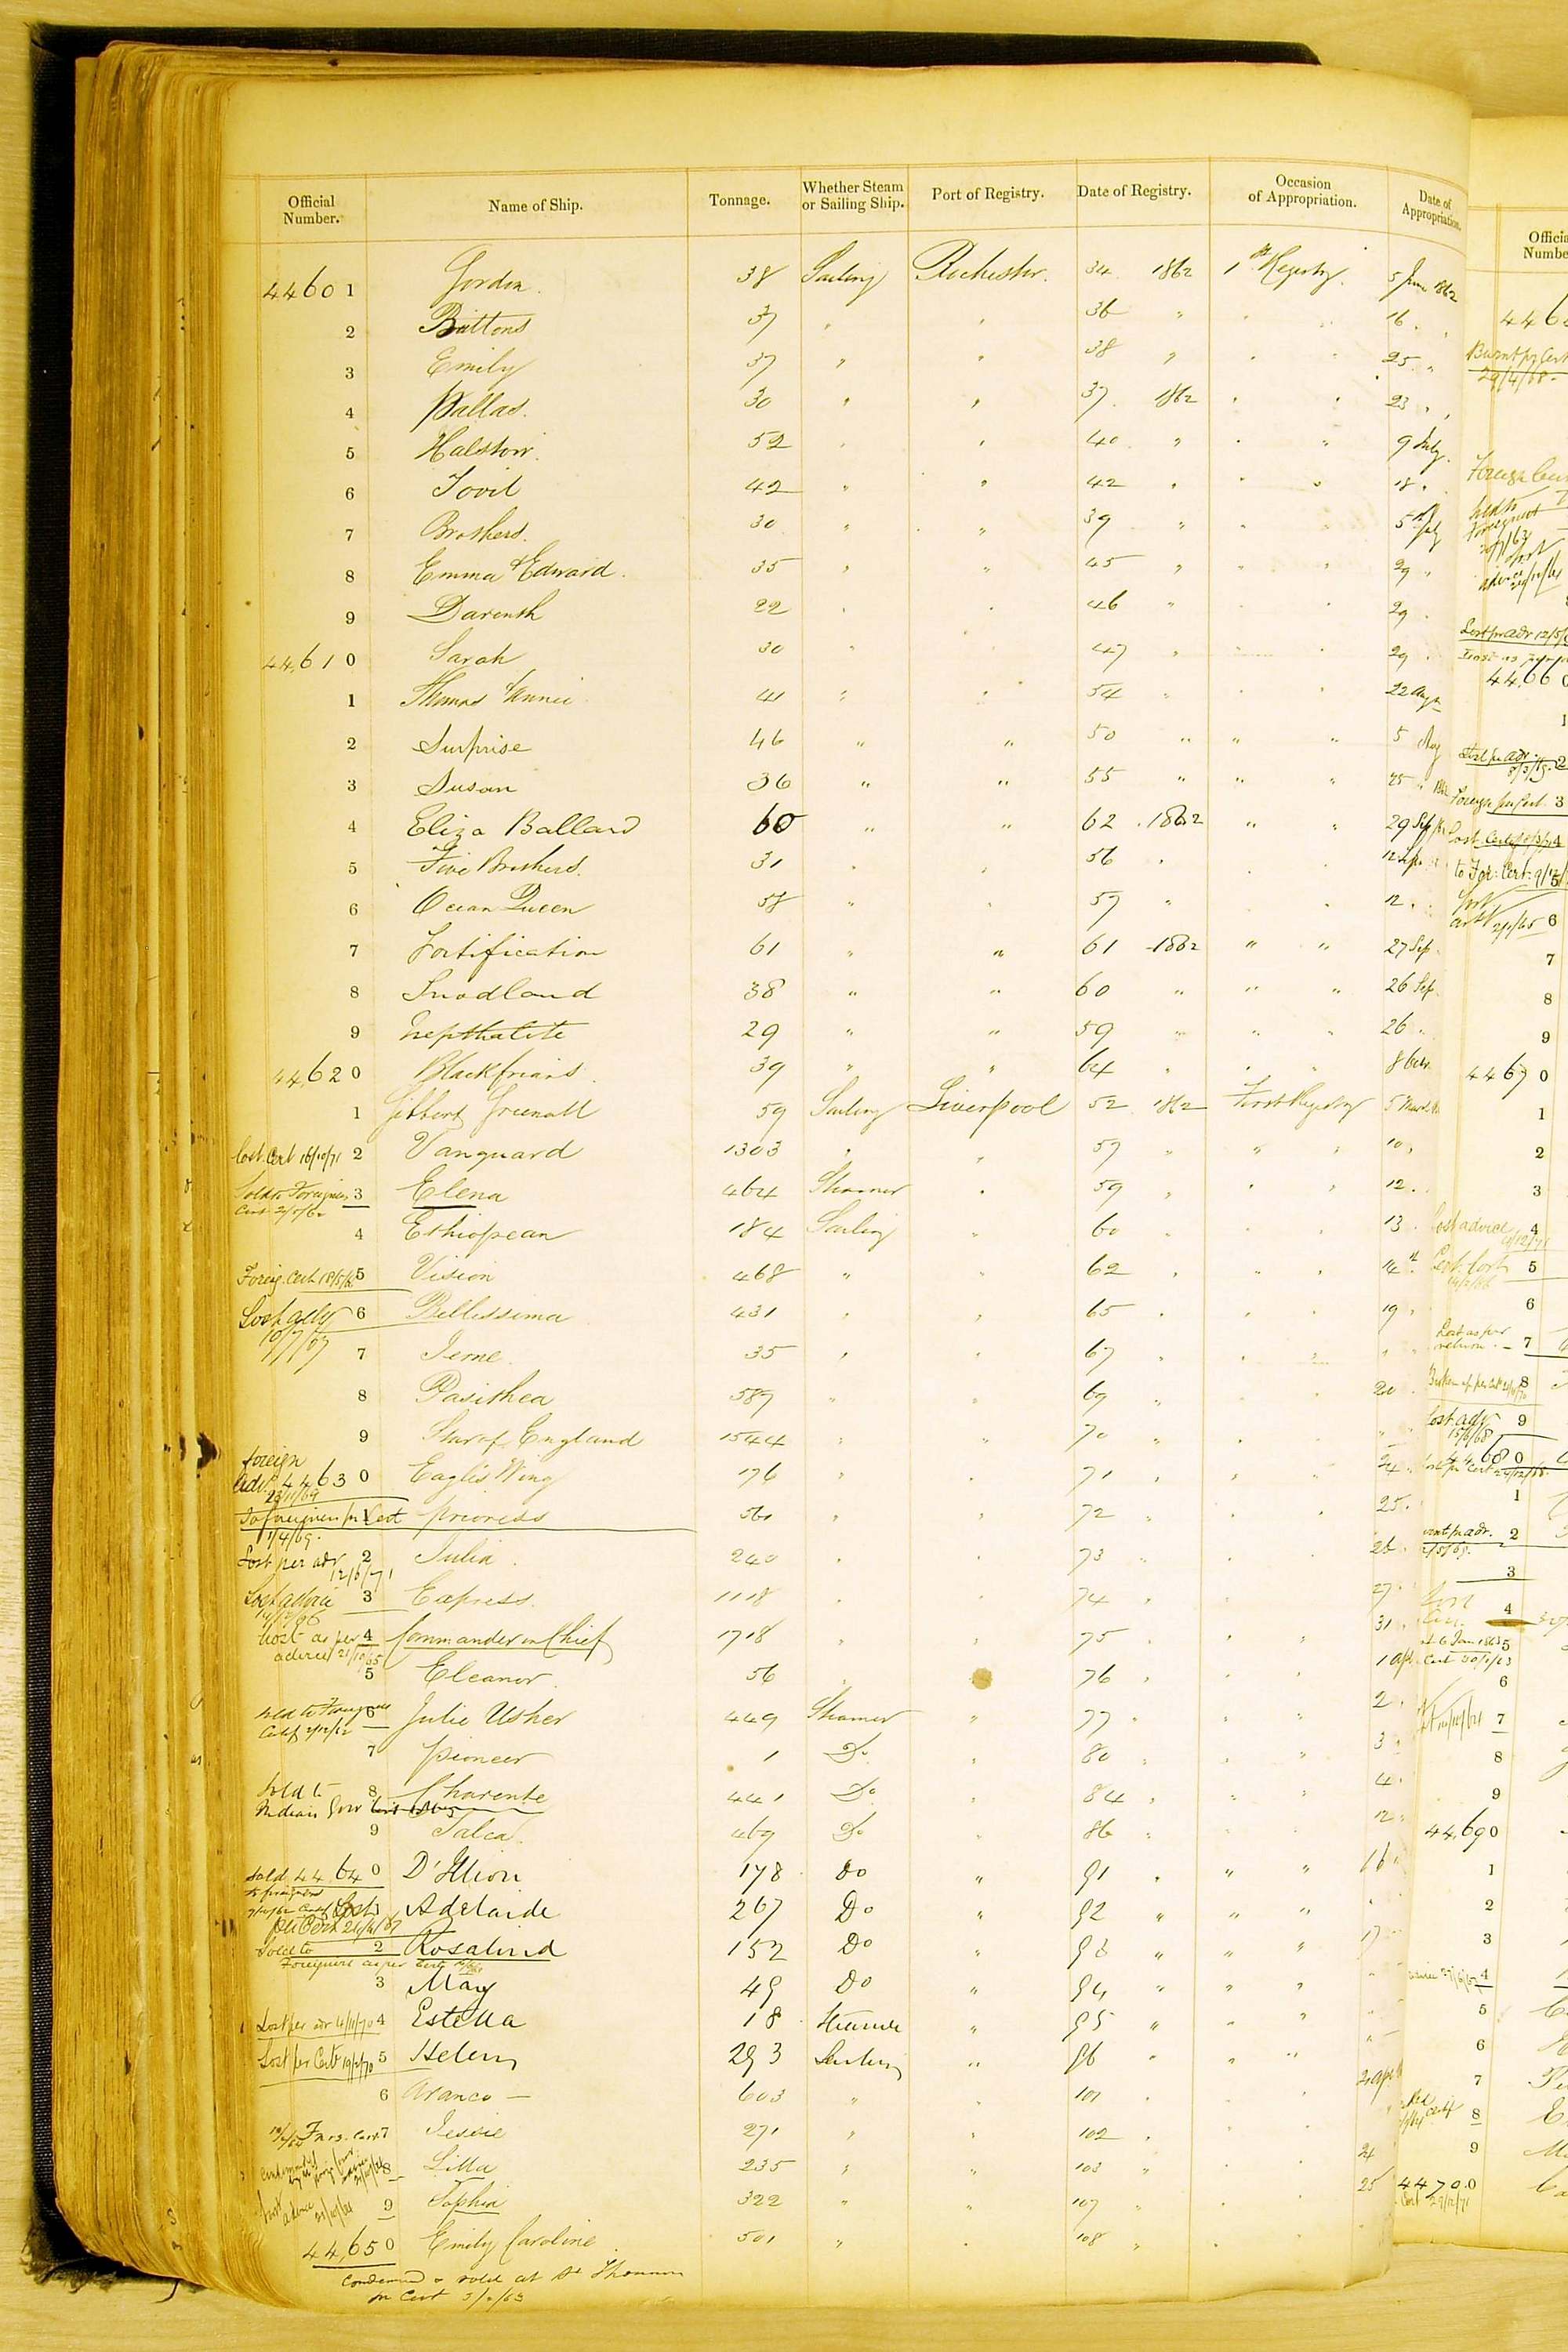 Official Number. Name of Ship. Tonnage. Whether Steam or Sailing Ship. Port of Registry. Date of Registry. Occasion of Appropriation. Date of Appropriation.
44601 Gordon. 38 Sailing Rochester. 34 1862 1st Registry. 5 June 1862
2 Brittons 37 " " 36 " " " 16 " "
3 Emily 37 " " 38 " " " 25 "
4 Pallas. 30 " " 37. 1862 " " 23 " "
5 Halstow. 52 " " 40 " " " 9 July
6 Tovil 42 " " 42 " " " 18 "
7 Brothers. 30 " " 39 " " " 5th July
8 Emma & Edward. 35 " " 45 " " " 29 "
9 Darenth 22 " " 46 " " " 29 "
44,610 Sarah 30 " " 47 " " " 29 "
1 Thomas & Annie 41 " " 54 " " " 22 Augt
2 Surprise 46 " " 50 " " " 5 Aug
3 Susan 36 " " 55 " " " 25 " 1862
4 Eliza Ballard 60 " " 62 1862 " " 29 Sep
5 Five Brothers. 31 " " 56 " " " 12 Sep.
6 Ocean Queen 58 " " 57 " " " 12 "
7 Fortification 61 " " 61 1862 " " 27 Sep
8 Snodland 38 " " 60 " " " 26 Sep.
9 Nepthalite 29 " " 59 " " " 26 "
44,620 Blackfriars. 39 " " 64 " " " 8
1 Gilbert Greenall 59 Sailing Liverpool 52 1862 First Registry 5 March
Lost. Cert 16/10/71 2 Vanguard 1303 " " 57 " " " 10 "
Sold to Foreigners 3 Elena 464 Steamer " 59 " " " 12 "
4 Ethiopean 184 Sailing " 60 " " " 13 "
Foreig. Cert 18/5/ 5 Vision 468 " " 62 " " " 14th
Lost adv 6 Bellissima 431 " " 65 " " " 19 "
10/7/67
7 Ierne. 35 " " 67 " " " " "
8 Pasithea 589 " " 69 " " " 20 "
9 Star of England 1544 " " 70 " " " "
foreign
adv. 44630 Eagle's Wing 176 " " 71 " " " 24 "
23/11/69
To foreigners pr Cert 1 Prioress 561 " " 72 " " " 25 "
1/4/69.
Lost per adv 2 Julia. 240 " " 73 " " " 26 "
12/6/71
Lost advice 3 Express. 1118 " " 74 " " " 27 "
Lost as per 4 Commander in Chief 1718 " " 75 " " " 31 "
advice 21/10/65
5 Eleanor. 56 " " 76 " " " 1 Apl
Sold to Foreigners 6 Julie Usher 449 Steamer " 77 " " " 2 "
Certf 2/12/62
7 Pioneer 1 Do. " 80 " " " 3 "
Sold to 8 Charente 441 Do " 84 " " " 4 "
Indian Gov
9 Talca. 469 Do " 86 " " " 12 "
Sold 44,640 D'Illion 178 Do " 91 " " " 16 "
to foreigners
Lost 1 Adelaide 267 Do " 92 " " " "
per Cert 24/4/67
Sold to 2 Rosalind 152 Do " 93 " " " 17 "
Foreigners as per Cert
3 May 49 Do " 94 " " " "
Lost per adv 4/11/70 4 Estella 18 Steamer " 95 " " " "
Lost per Cert 19/2/70 5 Helen 293 Sailing " 96 " " " "
6 Aranco — 603 " " 101 " " 2 Apr
Forg. Cert 7 Jessie 271 " " 102 " "
8 Lilla 235 " " 103 " 24
Lost advice 9 Sophia 322 " " 107 " " 25
44,650 Emily Caroline. 501 " " 108 " "
Condemned & sold at St Thomas
pr Cert
Official Number
Burnt pr Cert
29/4/68.
Lost pr adv 12/5/
44,660
1
2
Foreign pr Cert. 3
4
to For. Cert. 5
6
7
8
9
44670
1
2
3
Lost advice 4
Cert. Lost 5
6
Lost as per
return. — 7
8
Lost adv 9
15/6/68
44680
1
Burnt pr adv. 2
3
Lost 4
5
6
7
8
9
44,690
1
2
3
4
5
6
7
8
9
44700
Cert 29/12/71